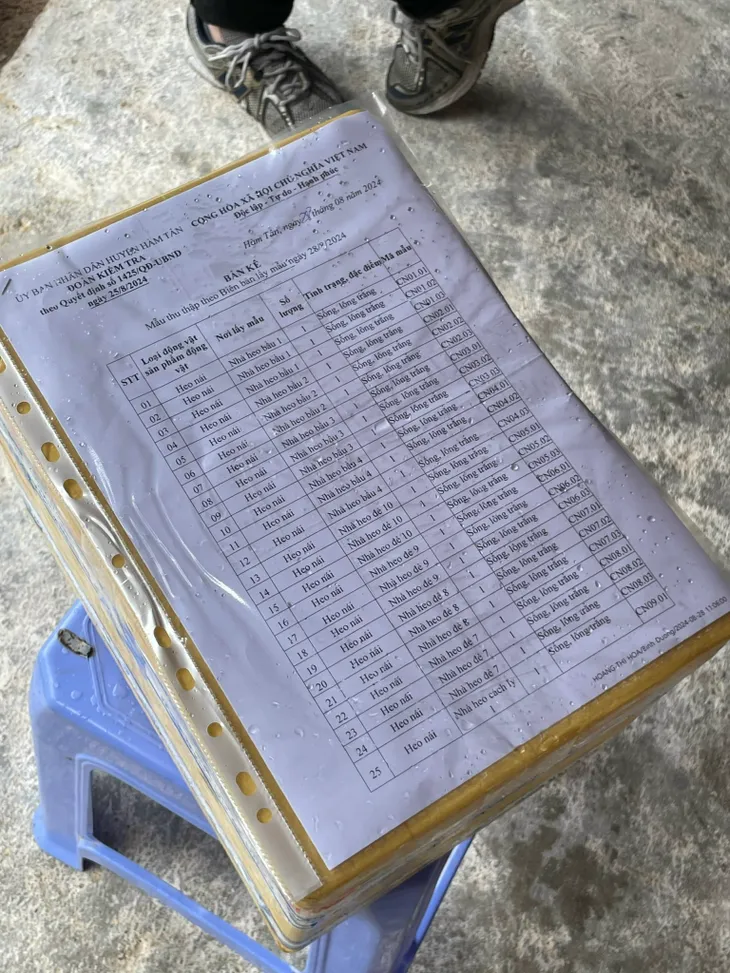 ỦY BAN NHÂN DÂN HUYỆN HÀM TÂN CỘNG HÒA XÃ HỘI CHỦ NGHĨA VIỆT NAM
ĐOÀN KIỂM TRA Độc lập - Tự do - Hạnh phúc
theo Quyết định số 1425/QĐ-UBND
ngày 25/8/2024 Hàm Tân, ngày 28 tháng 08 năm 2024
BẢN KÊ
Mẫu thu thập theo Biên bản lấy mẫu ngày 28/8/2024
STT Loại động vật sản phẩm động vật Nơi lấy mẫu Số lượng Tình trạng, đặc điểm Mã mẫu
01 Heo nái Nhà heo bầu 1 1 Sống, lông trắng CN01.01
02 Heo nái Nhà heo bầu 1 1 Sống, lông trắng CN01.02
03 Heo nái Nhà heo bầu 1 1 Sống, lông trắng CN01.03
04 Heo nái Nhà heo bầu 2 1 Sống, lông trắng CN02.01
05 Heo nái Nhà heo bầu 2 1 Sống, lông trắng CN02.02
06 Heo nái Nhà heo bầu 2 1 Sống, lông trắng CN02.03
07 Heo nái Nhà heo bầu 3 1 Sống, lông trắng CN03.01
08 Heo nái Nhà heo bầu 3 1 Sống, lông trắng CN03.02
09 Heo nái Nhà heo bầu 3 1 Sống, lông trắng CN03.03
10 Heo nái Nhà heo bầu 4 1 Sống, lông trắng CN04.01
11 Heo nái Nhà heo bầu 4 1 Sống, lông trắng CN04.02
12 Heo nái Nhà heo bầu 4 1 Sống, lông trắng CN04.03
13 Heo nái Nhà heo đẻ 10 1 Sống, lông trắng CN05.01
14 Heo nái Nhà heo đẻ 10 1 Sống, lông trắng CN05.02
15 Heo nái Nhà heo đẻ 10 1 Sống, lông trắng CN05.03
16 Heo nái Nhà heo đẻ 9 1 Sống, lông trắng CN06.01
17 Heo nái Nhà heo đẻ 9 1 Sống, lông trắng CN06.02
18 Heo nái Nhà heo đẻ 9 1 Sống, lông trắng CN06.03
19 Heo nái Nhà heo đẻ 8 1 Sống, lông trắng CN07.01
20 Heo nái Nhà heo đẻ 8 1 Sống, lông trắng CN07.02
21 Heo nái Nhà heo đẻ 8 1 Sống, lông trắng CN07.03
22 Heo nái Nhà heo đẻ 7 1 Sống, lông trắng CN08.01
23 Heo nái Nhà heo đẻ 7 1 Sống, lông trắng CN08.02
24 Heo nái Nhà heo đẻ 7 1 Sống, lông trắng CN08.03
25 Heo nái Nhà heo cách ly 1 1 Sống, lông trắng CN09.01
HOANG THI HOA/Binh Duong/2024-08-28 11:08:00